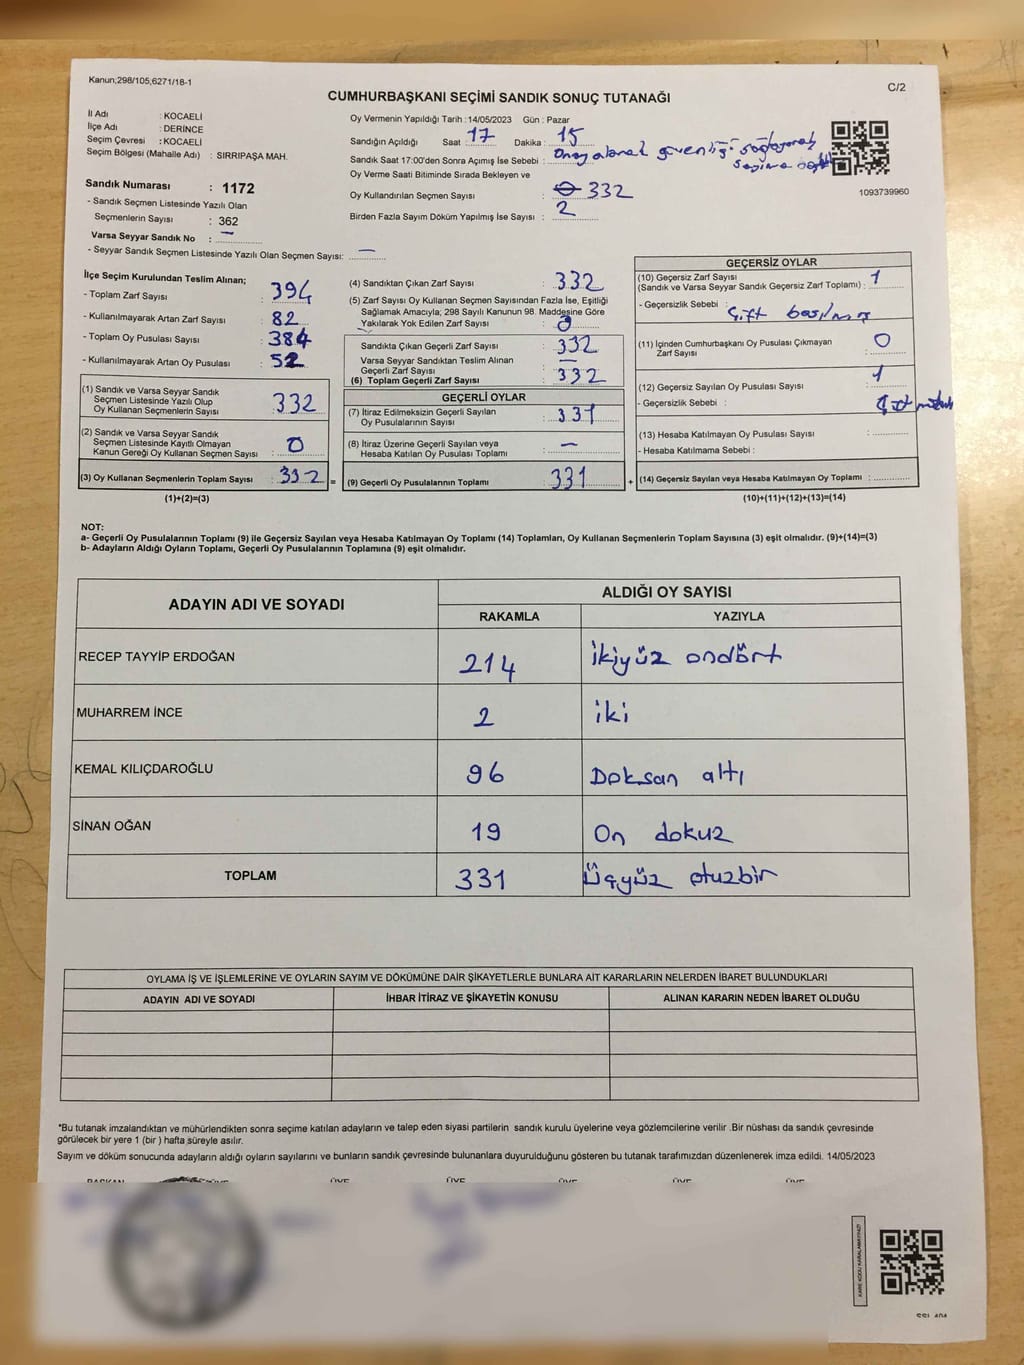 Kanun;298/105,6271/18-1
C/2
CUMHURBAŞKANI SEÇİMİ SANDIK SONUÇ TUTANAĞI
İl Adı : KOCAELİ
İlçe Adı : DERİNCE
Seçim Çevresi : KOCAELİ
Seçim Bölgesi (Mahalle Adı) : SIRRIPAŞA MAH.
Sandık Numarası : 1172
- Sandık Seçmen Listesinde Yazılı Olan
Seçmenlerin Sayısı : 362
Varsa Seyyar Sandık No : —
- Seyyar Sandık Seçmen Listesinde Yazılı Olan Seçmen Sayısı: —
Oy Vermenin Yapıldığı Tarih : 14/05/2023 Gün : Pazar
Sandığın Açıldığı Saat : 17 Dakika : 15
Sandık Saat 17:00'den Sonra Açımış İse Sebebi : güvenliği
Oy Verme Saati Bitiminde Sırada Bekleyen ve
Oy Kullandırılan Seçmen Sayısı : 332
Birden Fazla Sayım Döküm Yapılmış İse Sayısı : 2
1093739960
İlçe Seçim Kurulundan Teslim Alınan;
- Toplam Zarf Sayısı : 394
- Kullanılmayarak Artan Zarf Sayısı : 82
- Toplam Oy Pusulası Sayısı : 384
- Kullanılmayarak Artan Oy Pusulası : 52
(1) Sandık ve Varsa Seyyar Sandık
Seçmen Listesinde Yazılı Olup
Oy Kullanan Seçmenlerin Sayısı : 332
(2) Sandık ve Varsa Seyyar Sandık
Seçmen Listesinde Kayıtlı Olmayan
Kanun Gereği Oy Kullanan Seçmen Sayısı : 0
(3) Oy Kullanan Seçmenlerin Toplam Sayısı : 332 =
(1)+(2)=(3)
(4) Sandıktan Çıkan Zarf Sayısı : 332
(5) Zarf Sayısı Oy Kullanan Seçmen Sayısından Fazla İse, Eşitliği
Sağlamak Amacıyla; 298 Sayılı Kanunun 98. Maddesine Göre
Yakılarak Yok Edilen Zarf Sayısı : 0
Sandıkta Çıkan Geçerli Zarf Sayısı : 332
Varsa Seyyar Sandıktan Teslim Alınan
Geçerli Zarf Sayısı : —
(6) Toplam Geçerli Zarf Sayısı : 332
GEÇERLİ OYLAR
(7) İtiraz Edilmeksizin Geçerli Sayılan
Oy Pusulalarının Sayısı : 331
(8) İtiraz Üzerine Geçerli Sayılan veya
Hesaba Katılan Oy Pusulası Toplamı : —
(9) Geçerli Oy Pusulalarının Toplamı : 331 +
GEÇERSİZ OYLAR
(10) Geçersiz Zarf Sayısı
(Sandık ve Varsa Seyyar Sandık Geçersiz Zarf Toplamı) : 1
- Geçersizlik Sebebi : Çift basılmış
(11) İçinden Cumhurbaşkanı Oy Pusulası Çıkmayan
Zarf Sayısı : 0
(12) Geçersiz Sayılan Oy Pusulası Sayısı : 1
- Geçersizlik Sebebi : Çift
(13) Hesaba Katılmayan Oy Pusulası Sayısı :
- Hesaba Katılmama Sebebi :
(14) Geçersiz Sayılan veya Hesaba Katılmayan Oy Toplamı :
(10)+(11)+(12)+(13)=(14)
NOT:
a- Geçerli Oy Pusulalarının Toplamı (9) ile Geçersiz Sayılan veya Hesaba Katılmayan Oy Toplamı (14) Toplamları, Oy Kullanan Seçmenlerin Toplam Sayısına (3) eşit olmalıdır. (9)+(14)=(3)
b- Adayların Aldığı Oyların Toplamı, Geçerli Oy Pusulalarının Toplamına (9) eşit olmalıdır.
ADAYIN ADI VE SOYADI ALDIĞI OY SAYISI
RAKAMLA YAZIYLA
RECEP TAYYİP ERDOĞAN 214 ikiyüz ondört
MUHARREM İNCE 2 iki
KEMAL KILIÇDAROĞLU 96 Doksan altı
SİNAN OĞAN 19 On dokuz
TOPLAM 331 Üçyüz otuzbir
OYLAMA İŞ VE İŞLEMLERİNE VE OYLARIN SAYIM VE DÖKÜMÜNE DAİR ŞİKAYETLERLE BUNLARA AİT KARARLARIN NELERDEN İBARET BULUNDUKLARI
ADAYIN ADI VE SOYADI İHBAR İTİRAZ VE ŞİKAYETİN KONUSU ALINAN KARARIN NEDEN İBARET OLDUĞU
*Bu tutanak imzalandıktan ve mühürlendikten sonra seçime katılan adayların ve talep eden siyasi partilerin sandık kurulu üyelerine veya gözlemcilerine verilir .Bir nüshası da sandık çevresinde
görülecek bir yere 1 (bir ) hafta süreyle asılır.
Sayım ve döküm sonucunda adayların aldığı oyların sayılarını ve bunların sandık çevresinde bulunanlara duyurulduğunu gösteren bu tutanak tarafımızdan düzenlenerek imza edildi. 14/05/2023
BAŞKAN ÜYE ÜYE ÜYE ÜYE ÜYE
KARE KODU KARALAMAYINIZ!